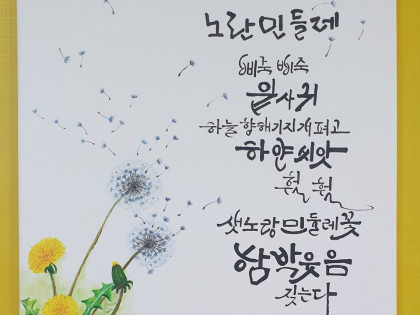 노란민들레
삐죽 삐죽
잎사귀
하늘향해기지개펴고
하얀씨앗
훨 훨
샛노랑민들레꽃
함박웃음
짓는다